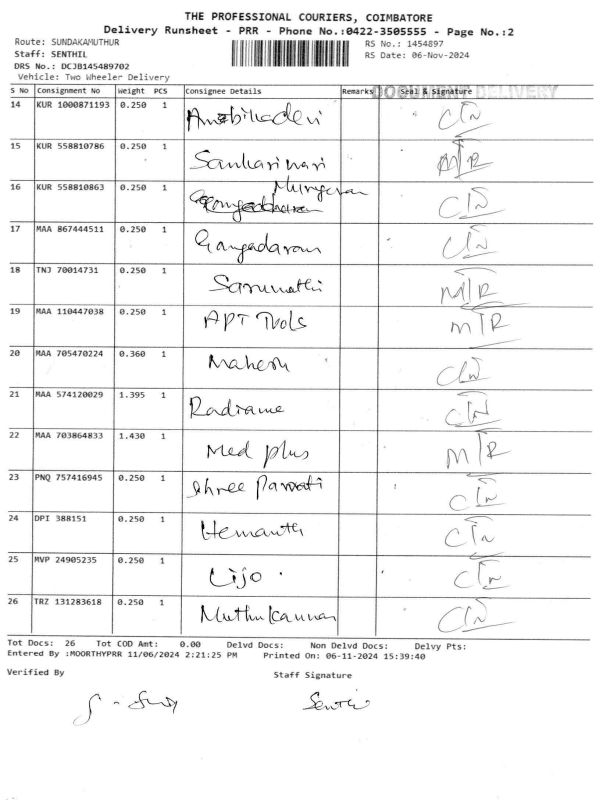 THE PROFESSIONAL COURIERS, COIMBATORE
Delivery Runsheet - PRR - Phone No.:0422-3505555 - Page No.:2
Route: SUNDAKAMUTHUR RS No.: 1454897
Staff: SENTHIL RS Date: 06-Nov-2024
DRS No.: DCJB145489702
Vehicle: Two Wheeler Delivery
DOCUMENT DELIVERY
S No Consignment No Weight PCS Consignee Details Remarks Seal & Signature
14 KUR 1000871193 0.250 1 Ambikadevi
15 KUR 558810786 0.250 1 M/R
16 KUR 558810863 0.250 1 Murugesan
17 MAA 867444511 0.250 1 Gangadaran
18 TNJ 70014731 0.250 1 Sarumathi M/R
19 MAA 110447038 0.250 1 APT Tools M/R
20 MAA 705470224 0.360 1 Mahesh
21 MAA 574120029 1.395 1
22 MAA 703864833 1.430 1 Med plus M/R
23 PNQ 757416945 0.250 1 Shree Parvati
24 DPI 388151 0.250 1 Hemanth
25 MVP 24905235 0.250 1 Lijo.
26 TRZ 131283618 0.250 1 Muthukannan
Tot Docs: 26 Tot COD Amt: 0.00 Delvd Docs: Non Delvd Docs: Delvy Pts:
Entered By :MOORTHYPRR 11/06/2024 2:21:25 PM Printed On: 06-11-2024 15:39:40
Verified By Staff Signature
Senthil